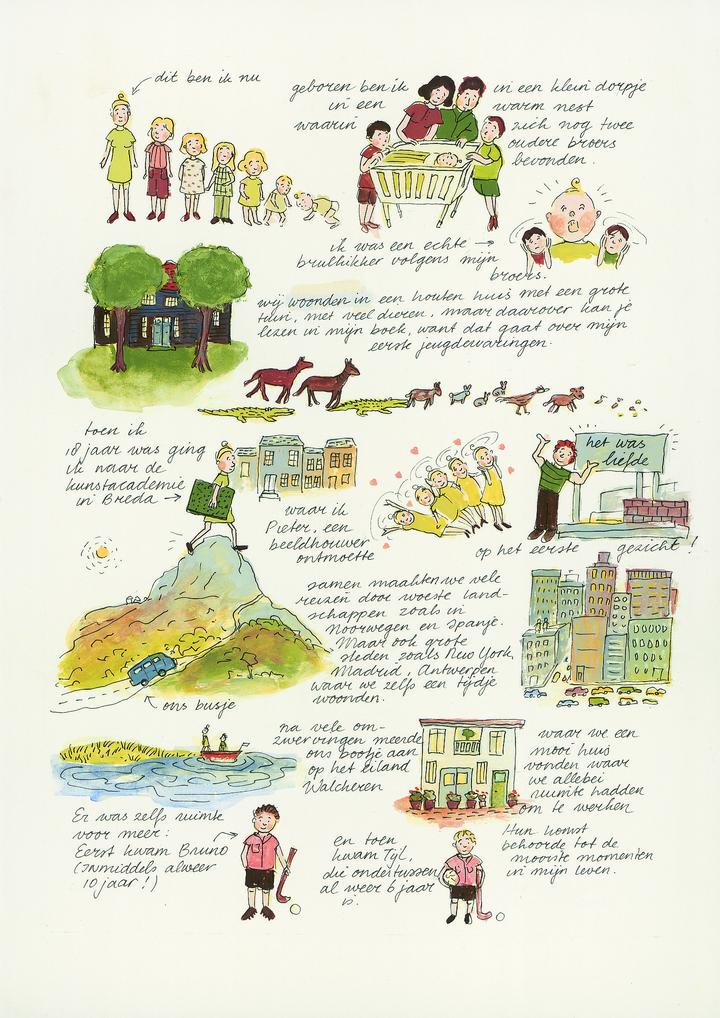 dit ben ik nu
geboren ben ik
in een
waarin
in een klein dorpje
warm nest
zich nog twee
oudere broers
bevonden.
ik was een echte →
brulkikker volgens mijn
broers.
wij woonden in een houten huis met een grote
tuin, met veel dieren, maar daarover kan je
lezen in mijn boek, want dat gaat over mijn
eerste jeugdervaringen.
toen ik
18 jaar was ging
ik naar de
kunstacademie
in Breda →
waar ik
Pieter, een
beeldhouwer
ontmoette
het was
liefde
op het eerste gezicht!
samen maakten we vele
reizen door woeste land-
schappen zoals in
Noorwegen en Spanje.
Maar ook grote
steden zoals New York,
Madrid, Antwerpen
waar we zelfs een tijdje
woonden.
ons busje
na vele om-
zwervingen meerde
ons bootje aan
op het eiland
Walcheren
waar we een
mooi huis
vonden waar
we allebei
ruimte hadden
om te werken
Er was zelfs ruimte
voor meer:
Eerst kwam Bruno
(inmiddels alweer
10 jaar!)
en toen
kwam Tijl,
die ondertussen
al weer 6 jaar
is.
Hun komst
behoorde tot de
mooiste momenten
in mijn leven.